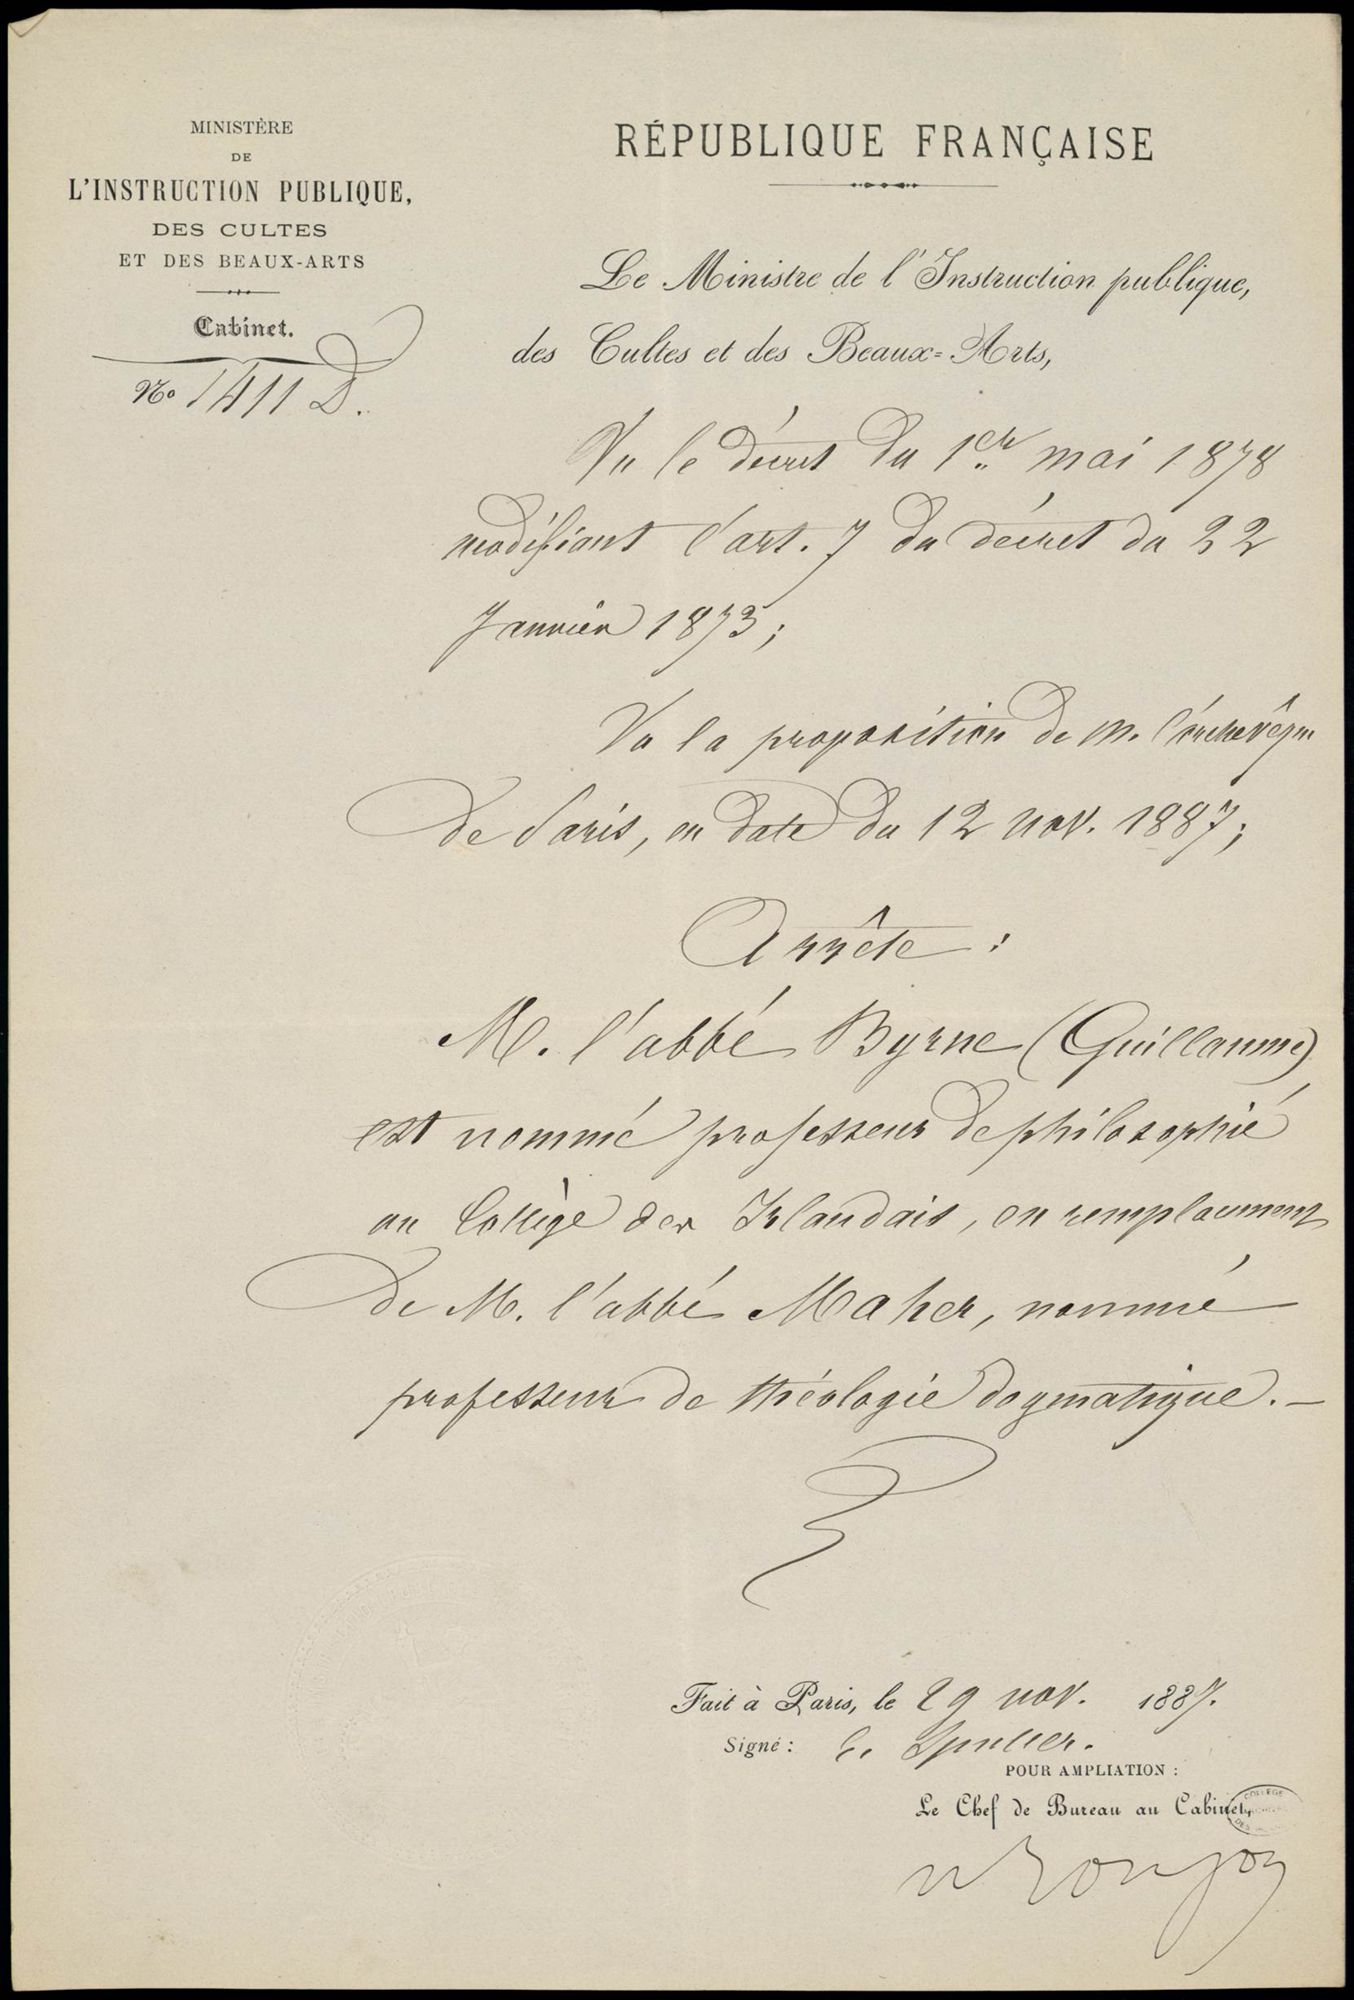 MINISTÈRE
DE
L'INSTRUCTION PUBLIQUE,
DES CULTES
ET DES BEAUX-ARTS
Cabinet.
No 1411 D.
RÉPUBLIQUE FRANÇAISE
Le Ministre de l'Instruction publique,
des Cultes et des Beaux-Arts,
Vu le décret du 1er mai 1878
modifiant l'art. 7 du décret du 22
Janvier 1873;
Vu la proposition de M. l'archevêque
de Paris, en date du 12 nov. 1887;
Arrête :
M. l'abbé Byrne (Guillaume)
est nommé professeur de philosophie
au Collège des Irlandais, en remplacement
de M. l'abbé Maher, nommé
professeur de théologie dogmatique. —
Fait à Paris, le 29 nov. 1887.
Signé : E. Spuller.
POUR AMPLIATION :
Le Chef de Bureau au Cabinet,
COLLÈGE
DES